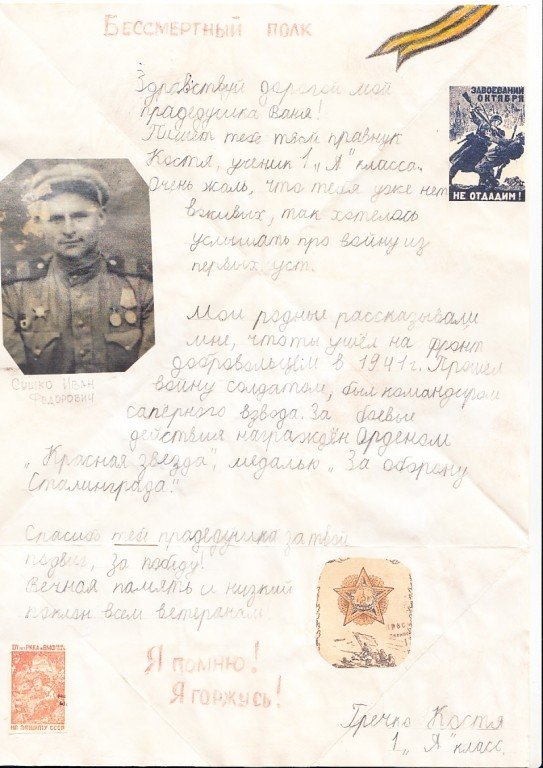 БЕССМЕРТНЫЙ ПОЛК
Здравствуй дорогой мой
прадедушка Ваня!
Пишет тебе твой правнук
Костя, ученик 1 „А" класса.
Очень жаль, что тебя уже нет
в живых, так хотелось
услышать про войну из
первых уст.
ЗАВОЕВАНИЙ
ОКТЯБРЯ
НЕ ОТДАДИМ!
Мои родные рассказывали
мне, что ты ушёл на фронт
добровольцем в 1941г. Прошел
войну солдатом, был командиром
сапёрного взвода. За боевые
действия награждён Орденом
„Красная звезда", медалью „За оборону
Сталинграда".
СУШКО ИВАН
ФЕДОРОВИЧ
Спасибо тебе прадедушка за твой
подвиг, за победу!
Вечная память и низкий
поклон всем ветеранам!
Я помню!
Я горжусь!
НА ЗАЩИТУ СССР
Гречко Костя
1 „А" класс.